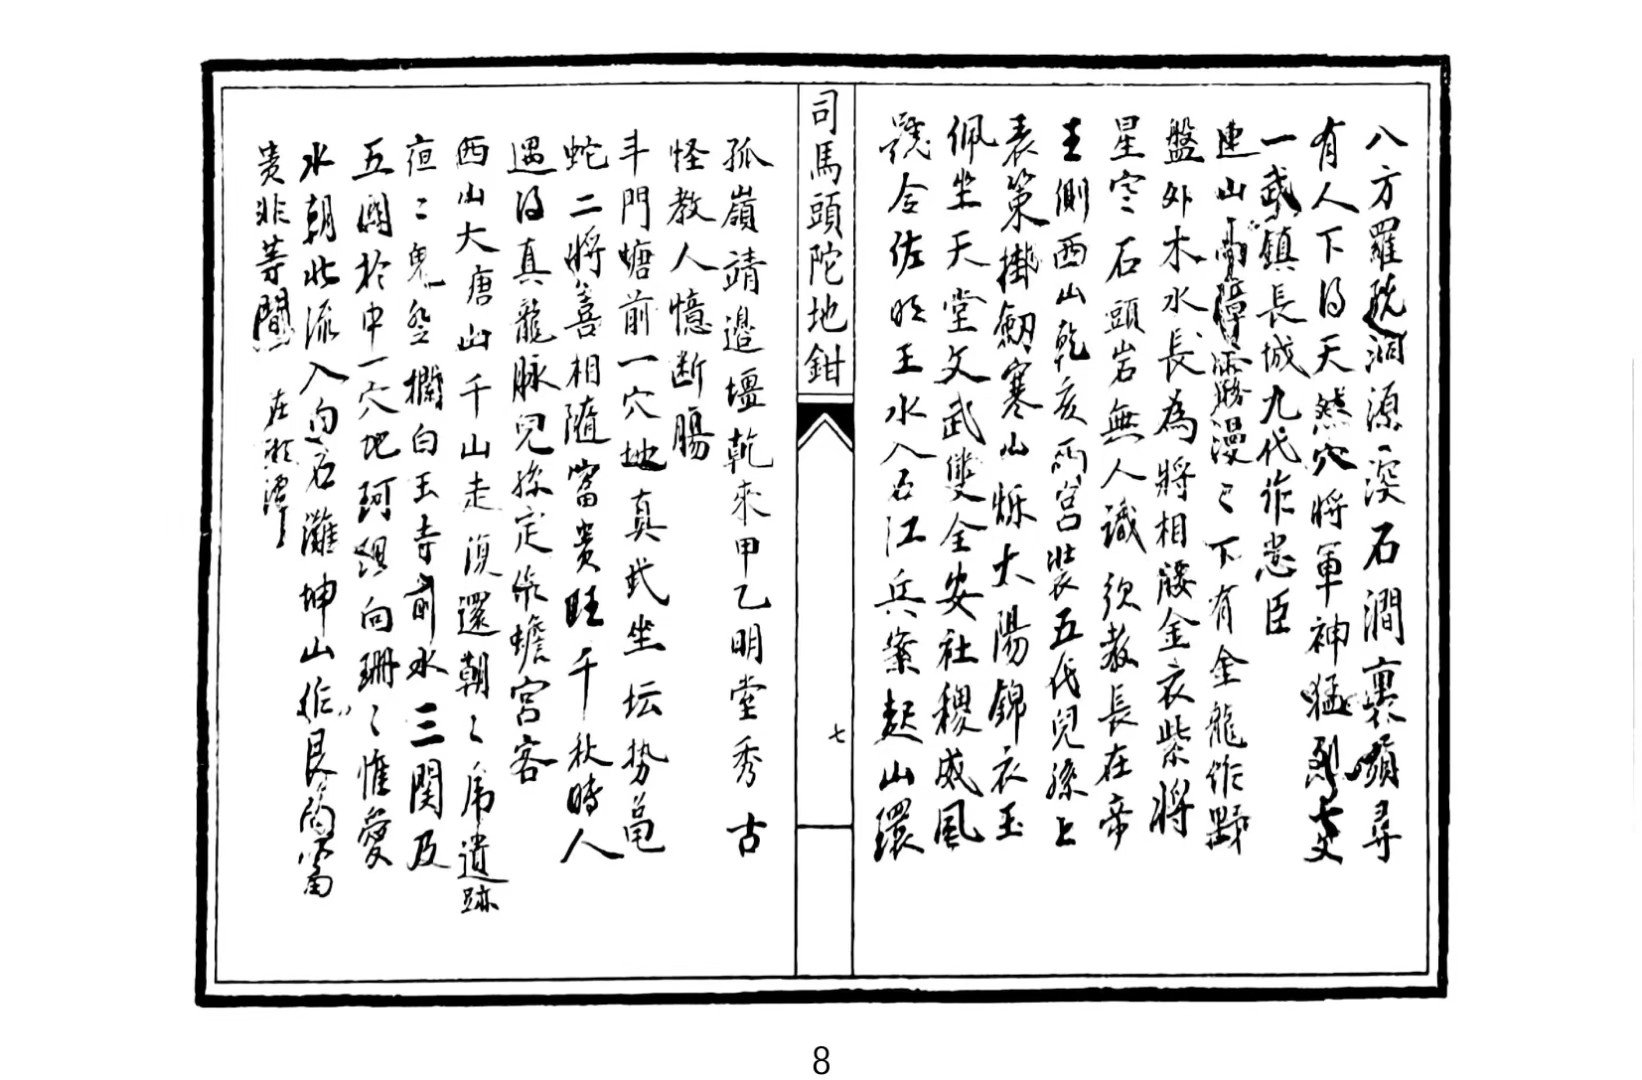 八方羅  洞源〻深石澗裏 尋
有人下得天然穴將軍神猛烈
一武鎮長城九代作忠臣
連山 障霧漫〻下有金龍作
盤外木水長為將相腰金衣紫將
星 石頭岩無人識須教長在帝
王側西山乾亥兩宮裝五代兒孫上
表策掛劍寒山 太陽錦衣玉
佩坐天堂文武雙全安社稷威風
號令佐 王水入石江兵案起山環
司馬頭陀地鉗
七
孤嶺靖邊壇乾來甲乙明堂秀古
怪教人憶斷腸
斗門塘前一穴地真武坐坛势龟
蛇二將喜相隨富貴旺千秋時人
遇得真龍脉兒孫定作蟾宮客
西山大唐山千山走復還朝〻 遺跡
〻鬼 欄白玉寺前水三関及
五 於中一穴地 向珊〻惟愛
水朝此流入向石灘坤山作艮向富
貴非等閒 在 潭
8